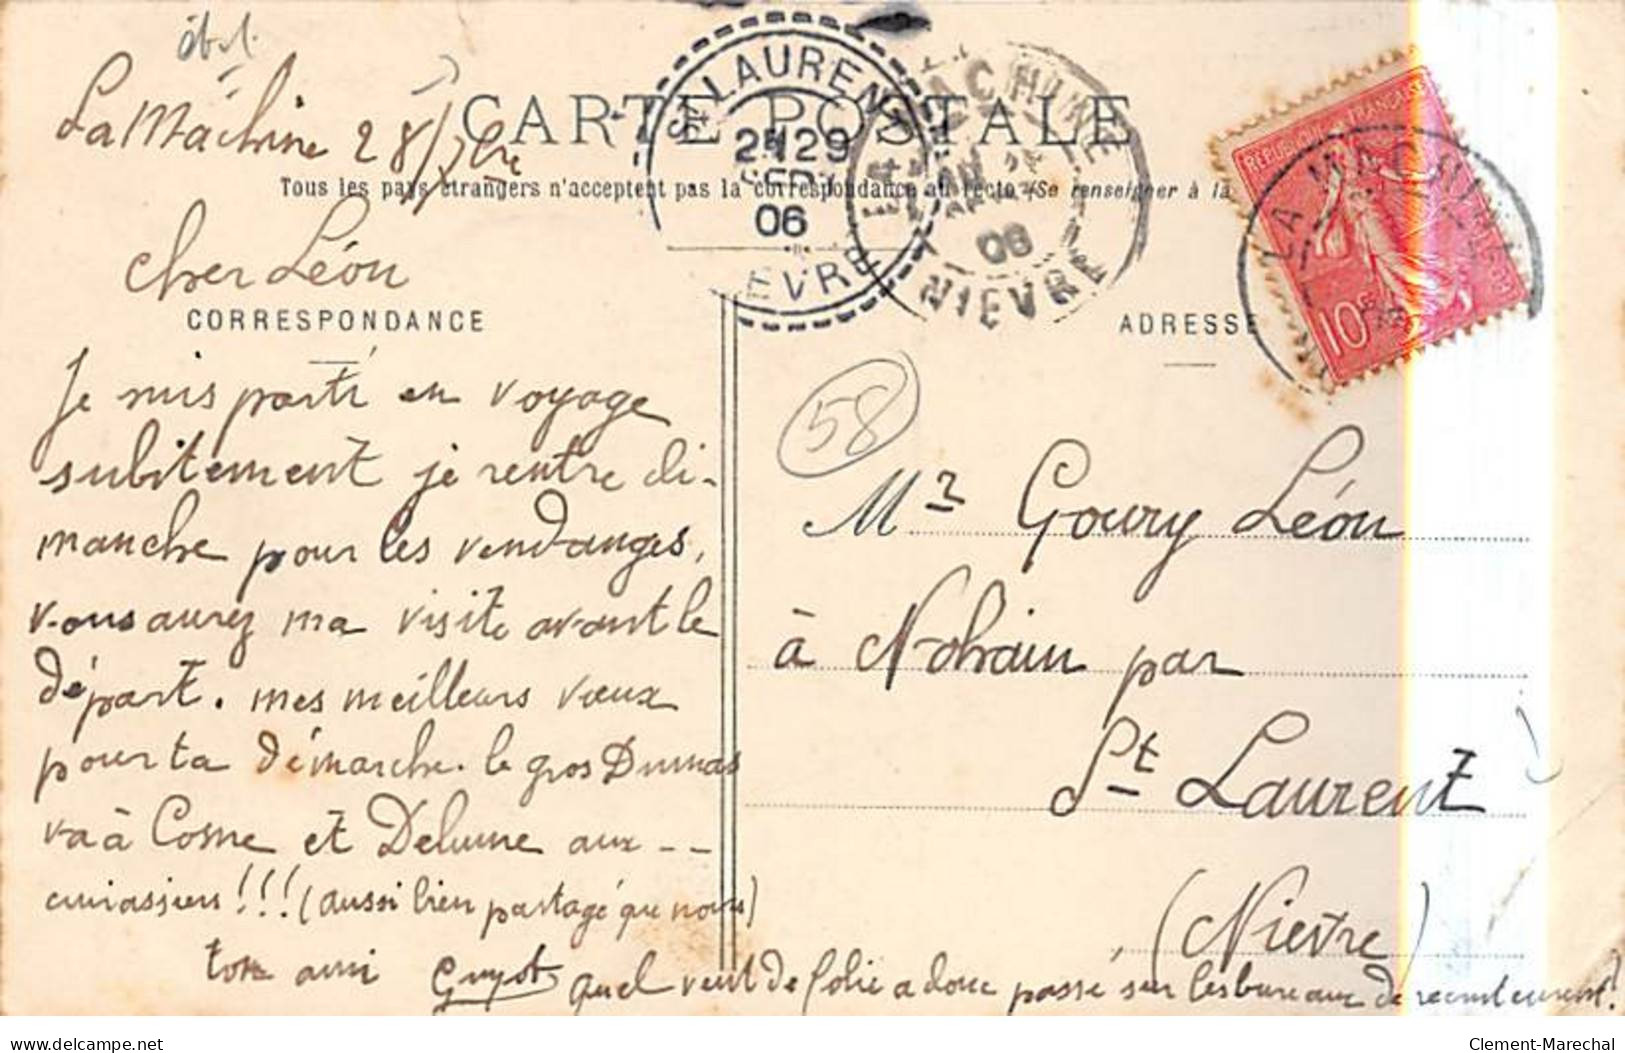 La Machine 28/7bre
CARTE POSTALE
Tous les pays étrangers n'acceptent pas la correspondance au recto (Se renseigner à la
ST LAURENT
29
SEPT
06
NIEVRE
LA MACHINE
06
NIEVRE
REPUBLIQUE FRANÇAISE
10
LA MACHINE
cher Léon
CORRESPONDANCE
Je suis parti en voyage
subitement je rentre di-
manche pour les vendanges,
vous aurez ma visite avant le
départ. mes meilleurs vœux
pour ta démarche. le gros Dumas
va à Cosne et Delume aux --
cuirassiers!!! (aussi bien partagé que nous)
ton ami Guyot
quel vent de folie a donc passé sur les bureaux de recrutement!
ADRESSE
58
Mr Goury Léon
à Nohain par
St Laurent
(Nièvre)
delcampe.net
Clement-Marechal